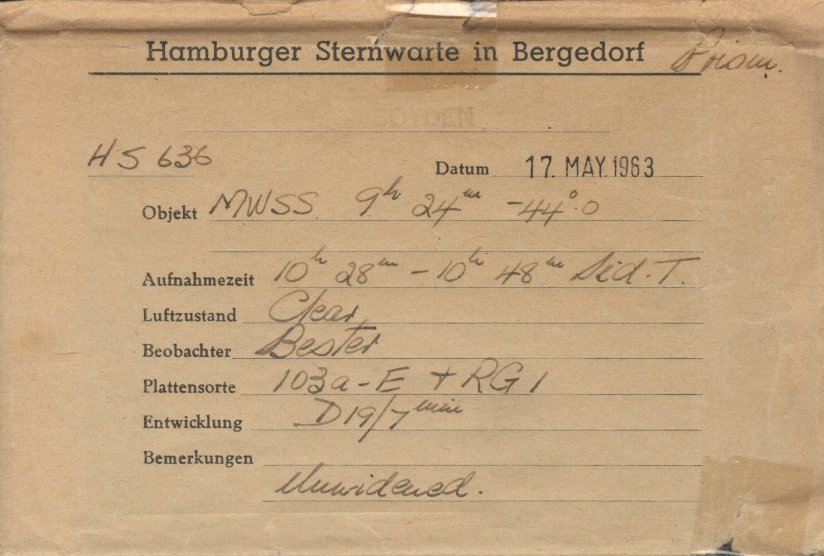 Hamburger Sternwarte in Bergedorf Prism.
BOYDEN
HS 636
Datum 17. MAY. 1963
Objekt MWSS 9h 24m -44°.0
Aufnahmezeit 10h 28m - 10h 48m Sid. T.
Luftzustand Clear
Beobachter Bester
Plattensorte 103a-E + RG1
Entwicklung D19/7min
Bemerkungen
Unwidened.